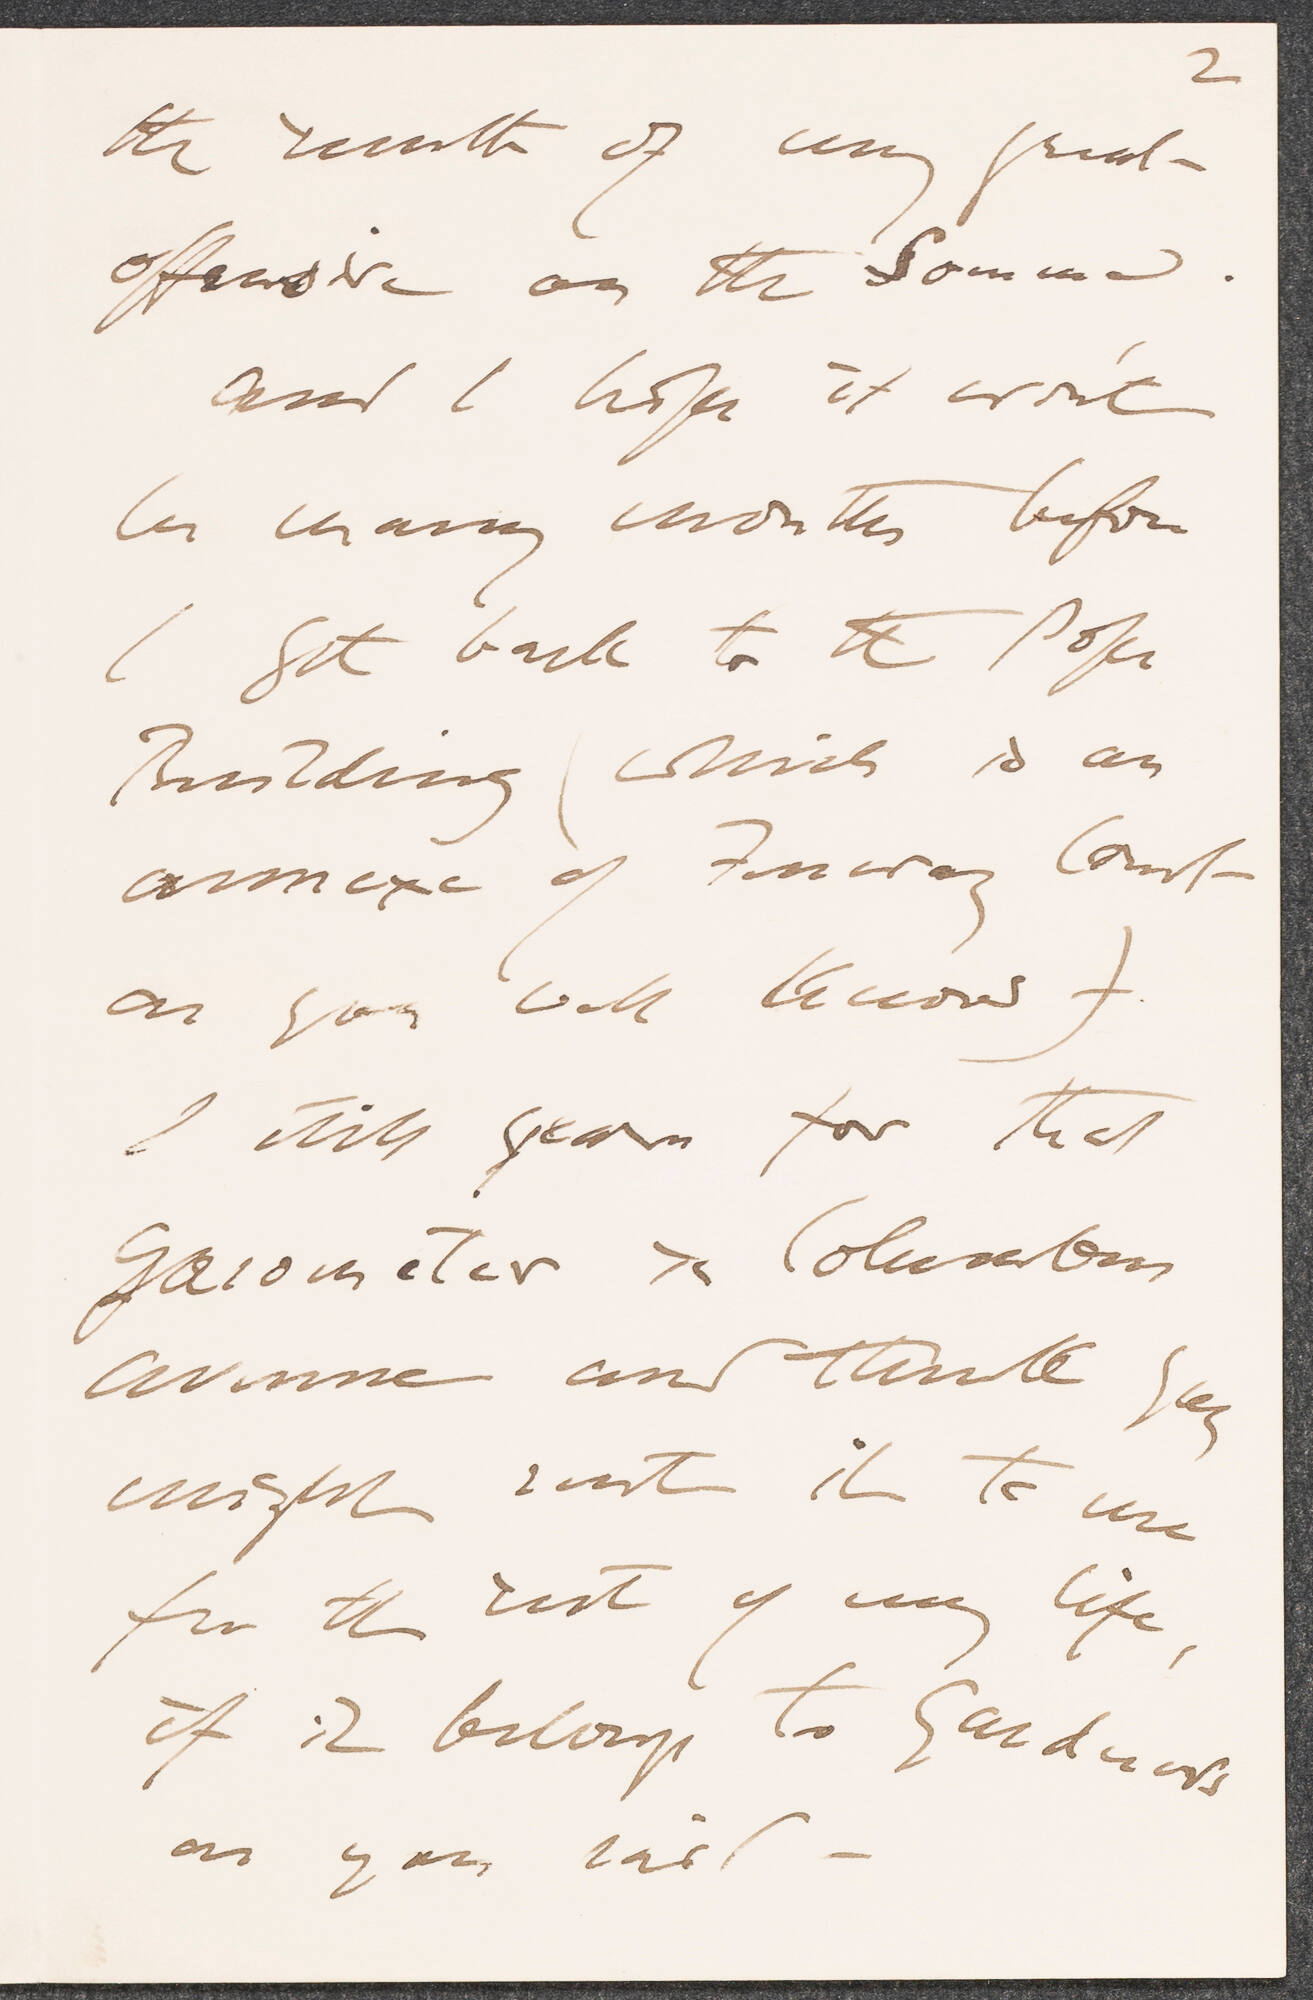 2
the results of my great
offensive on the Somme.
and I hope it won't
be many months before
I get back to the Pope
Building (which is an
annexe of Fenway Court
as you well know)
I still yearn for that
Gasometer in Columbus
avenue and think you
might rent it to me
for the rest of my life,
if it belongs to Gardners
as you said –